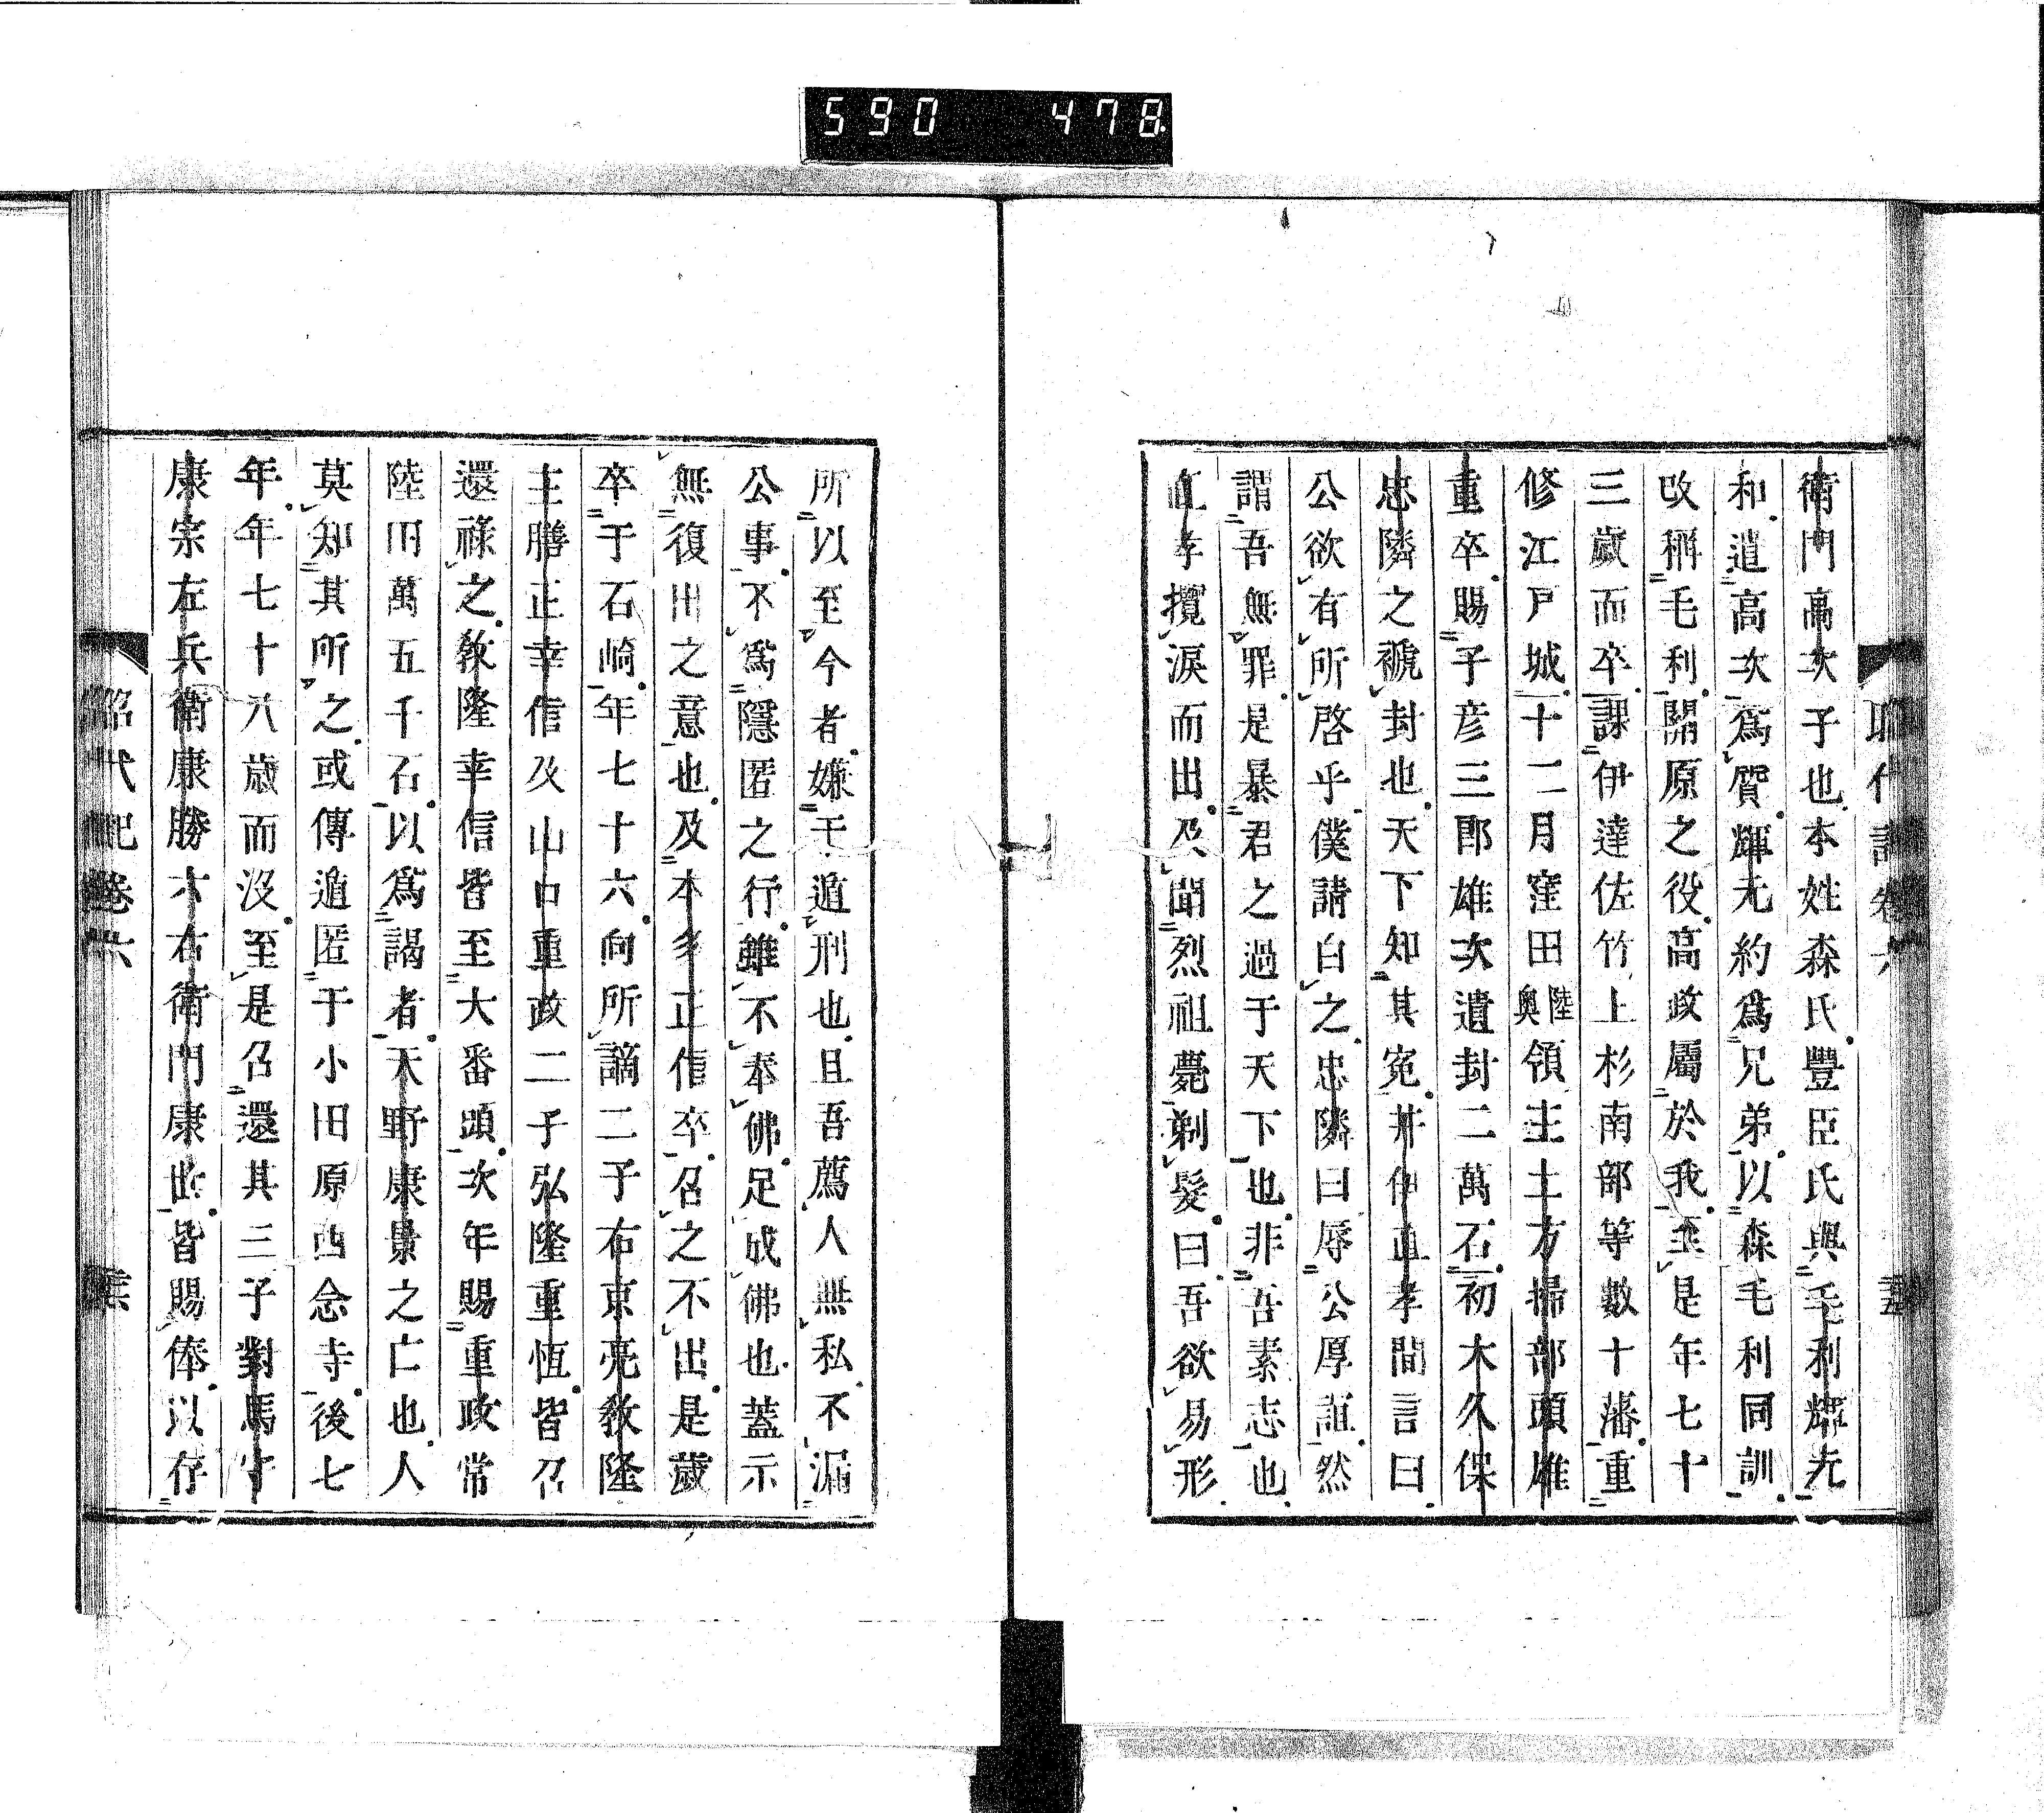 590 478
衛門高次子也本姓森氏豐臣氏與毛利輝元
和遣高次爲質輝元約爲兄弟以森毛利同訓
改稱毛利關原之役高政屬於我至是年七十
三歲而卒課伊達佐竹上杉南部等數十藩重
修江戸城十二月窪田陸奥領主土方掃部頭雄
重卒賜子彦三郎雄次遺封二萬石初大久保
忠隣之褫封也天下知其寃井伊直孝間言曰
公欲有所啓乎僕請白之忠隣曰辱公厚誼然
謂吾無罪是暴君之過于天下也非吾素志也
直孝攬涙而出及聞烈祖薨剃髮曰吾欲易形
所以至今者嫌于遁刑也且吾薦人無私不漏
公事不爲隱匿之行雖不奉佛足成佛也蓋示
無復出之意也及本多正信卒召之不出是歲
卒于石崎年七十六向所謫二子右京亮敎隆
主膳正幸信及山口重政二子弘隆重恆皆召
還祿之敎隆幸信皆至大番頭次年賜重政常
陸田萬五千石以爲謁者天野康景之亡也人
莫知其所之或傳遁匿于小田原西念寺後七
年年七十八歲而沒至是召還其三子對馬守
康宗左兵衛康勝六右衛門康此皆賜俸以存
昭代記卷六